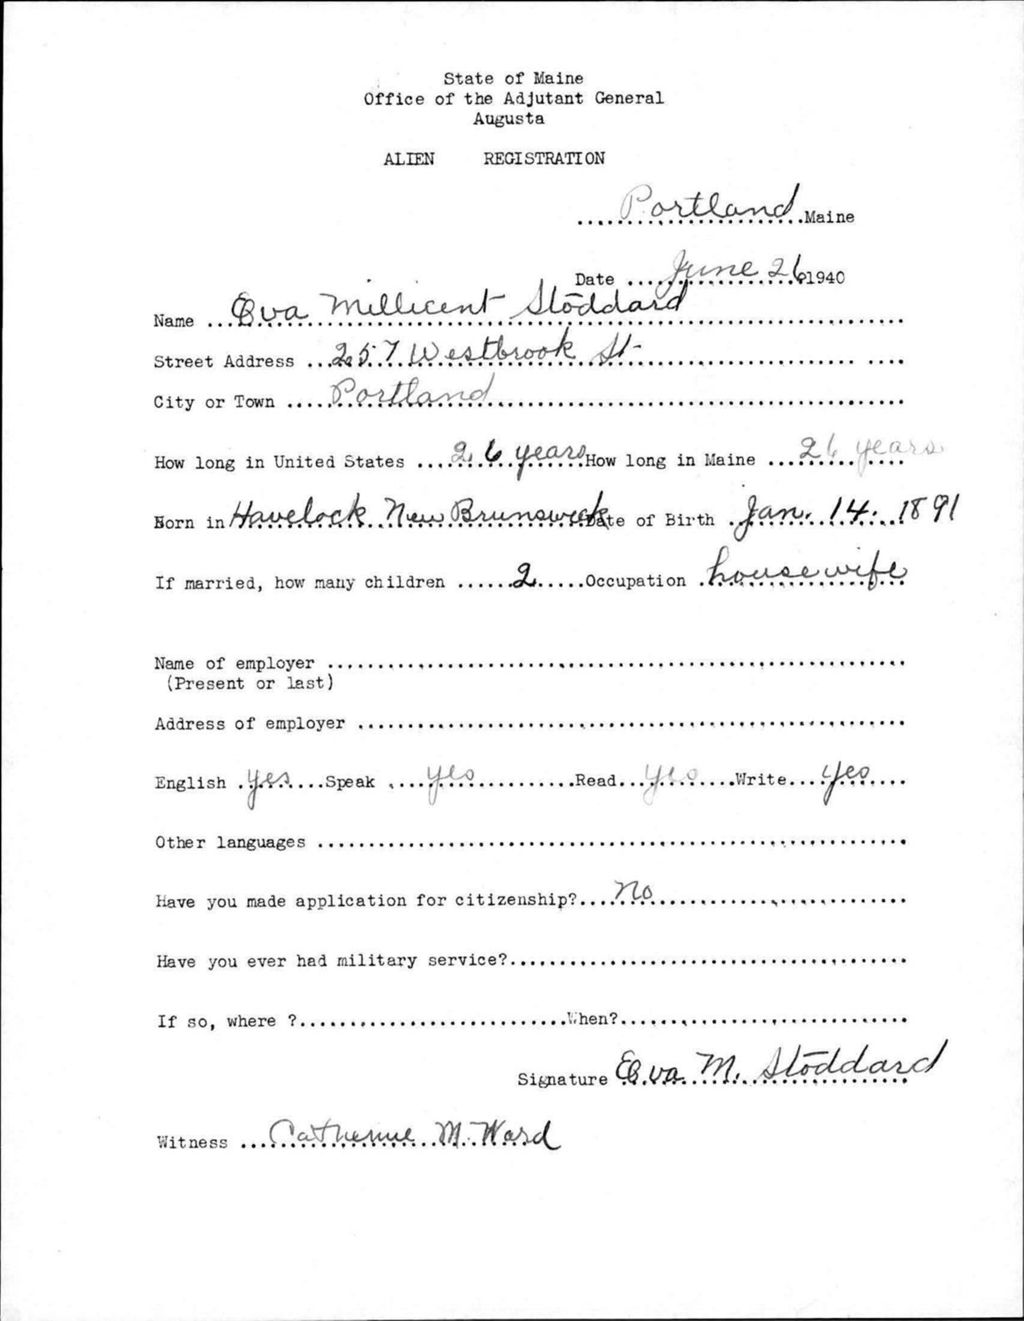 State of Maine
Office of the Adjutant General
Augusta
ALIEN REGISTRATION
Portland Maine
Date June 26 1940
Name Eva Millicent Stoddard
Street Address 257 Westbrook St
City or Town Portland
How long in United States 26 years How long in Maine 26 years
Born in Havelock New Brunswick Date of Birth Jan. 14. 1891
If married, how many children 2 Occupation housewife
Name of employer
(Present or last)
Address of employer
English yes Speak yes Read yes Write yes
Other languages
Have you made application for citizenship? No
Have you ever had military service?
If so, where ? When?
Signature Eva M. Stoddard
Witness Catherine M. Ward